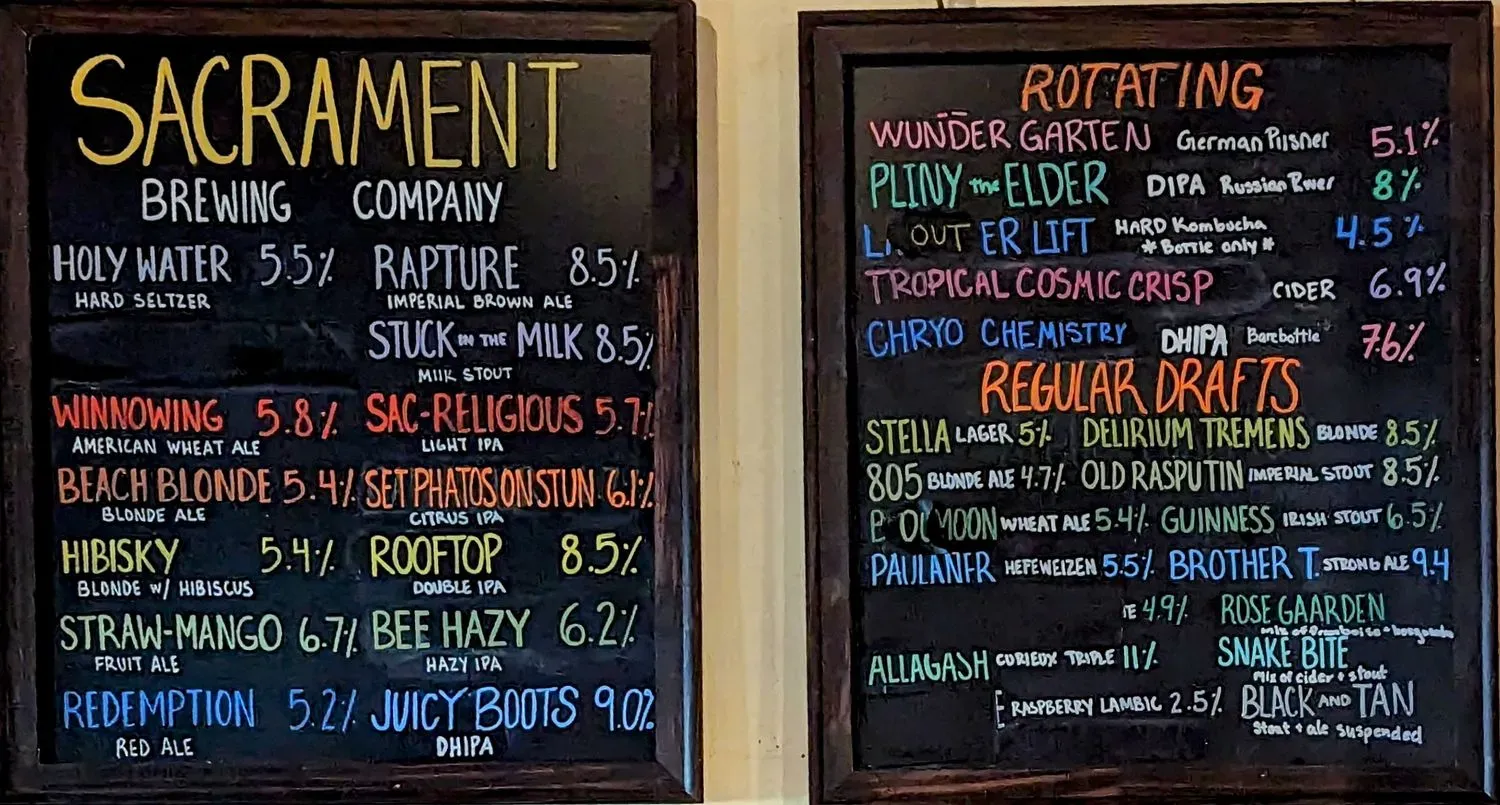 SACRAMENT
BREWING COMPANY
HOLY WATER 5.5%
HARD SELTZER
WINNOWING 5.8%
AMERICAN WHEAT ALE
BEACH BLONDE 5.4%
BLONDE ALE
HIBISKY 5.4%
BLONDE W/ HIBISCUS
STRAW-MANGO 6.7%
FRUIT ALE
REDEMPTION 5.2%
RED ALE
RAPTURE 8.5%
IMPERIAL BROWN ALE
STUCK IN THE MILK 8.5%
MILK STOUT
SAC-RELIGIOUS 5.7%
LIGHT IPA
SET PHATOS ON STUN 6.1%
CITRUS IPA
ROOFTOP 8.5%
DOUBLE IPA
BEE HAZY 6.2%
HAZY IPA
JUICY BOOTS 9.0%
DHIPA
ROTATING
WUNDER GARTEN German Pilsner 5.1%
PLINY the ELDER DIPA Russian River 8%
OUT ER LIFT HARD Kombucha 4.5%
*Bottle only*
TROPICAL COSMIC CRISP CIDER 6.9%
CHRYO CHEMISTRY DHIPA Barebottle 76%
REGULAR DRAFTS
STELLA LAGER 5% DELIRIUM TREMENS BLONDE 8.5%
805 BLONDE ALE 4.7% OLD RASPUTIN IMPERIAL STOUT 8.5%
MOON WHEAT ALE 5.4% GUINNESS IRISH STOUT 6.5%
PAULANER HEFEWEIZEN 5.5% BROTHER T. STRONG ALE 9.4
4.9% ROSE GAARDEN
mix of framboise +
ALLAGASH CURIEUX TRIPLE 11% SNAKE BITE
mix of cider + stout
RASPBERRY LAMBIC 2.5% BLACK AND TAN
stout + ale suspended